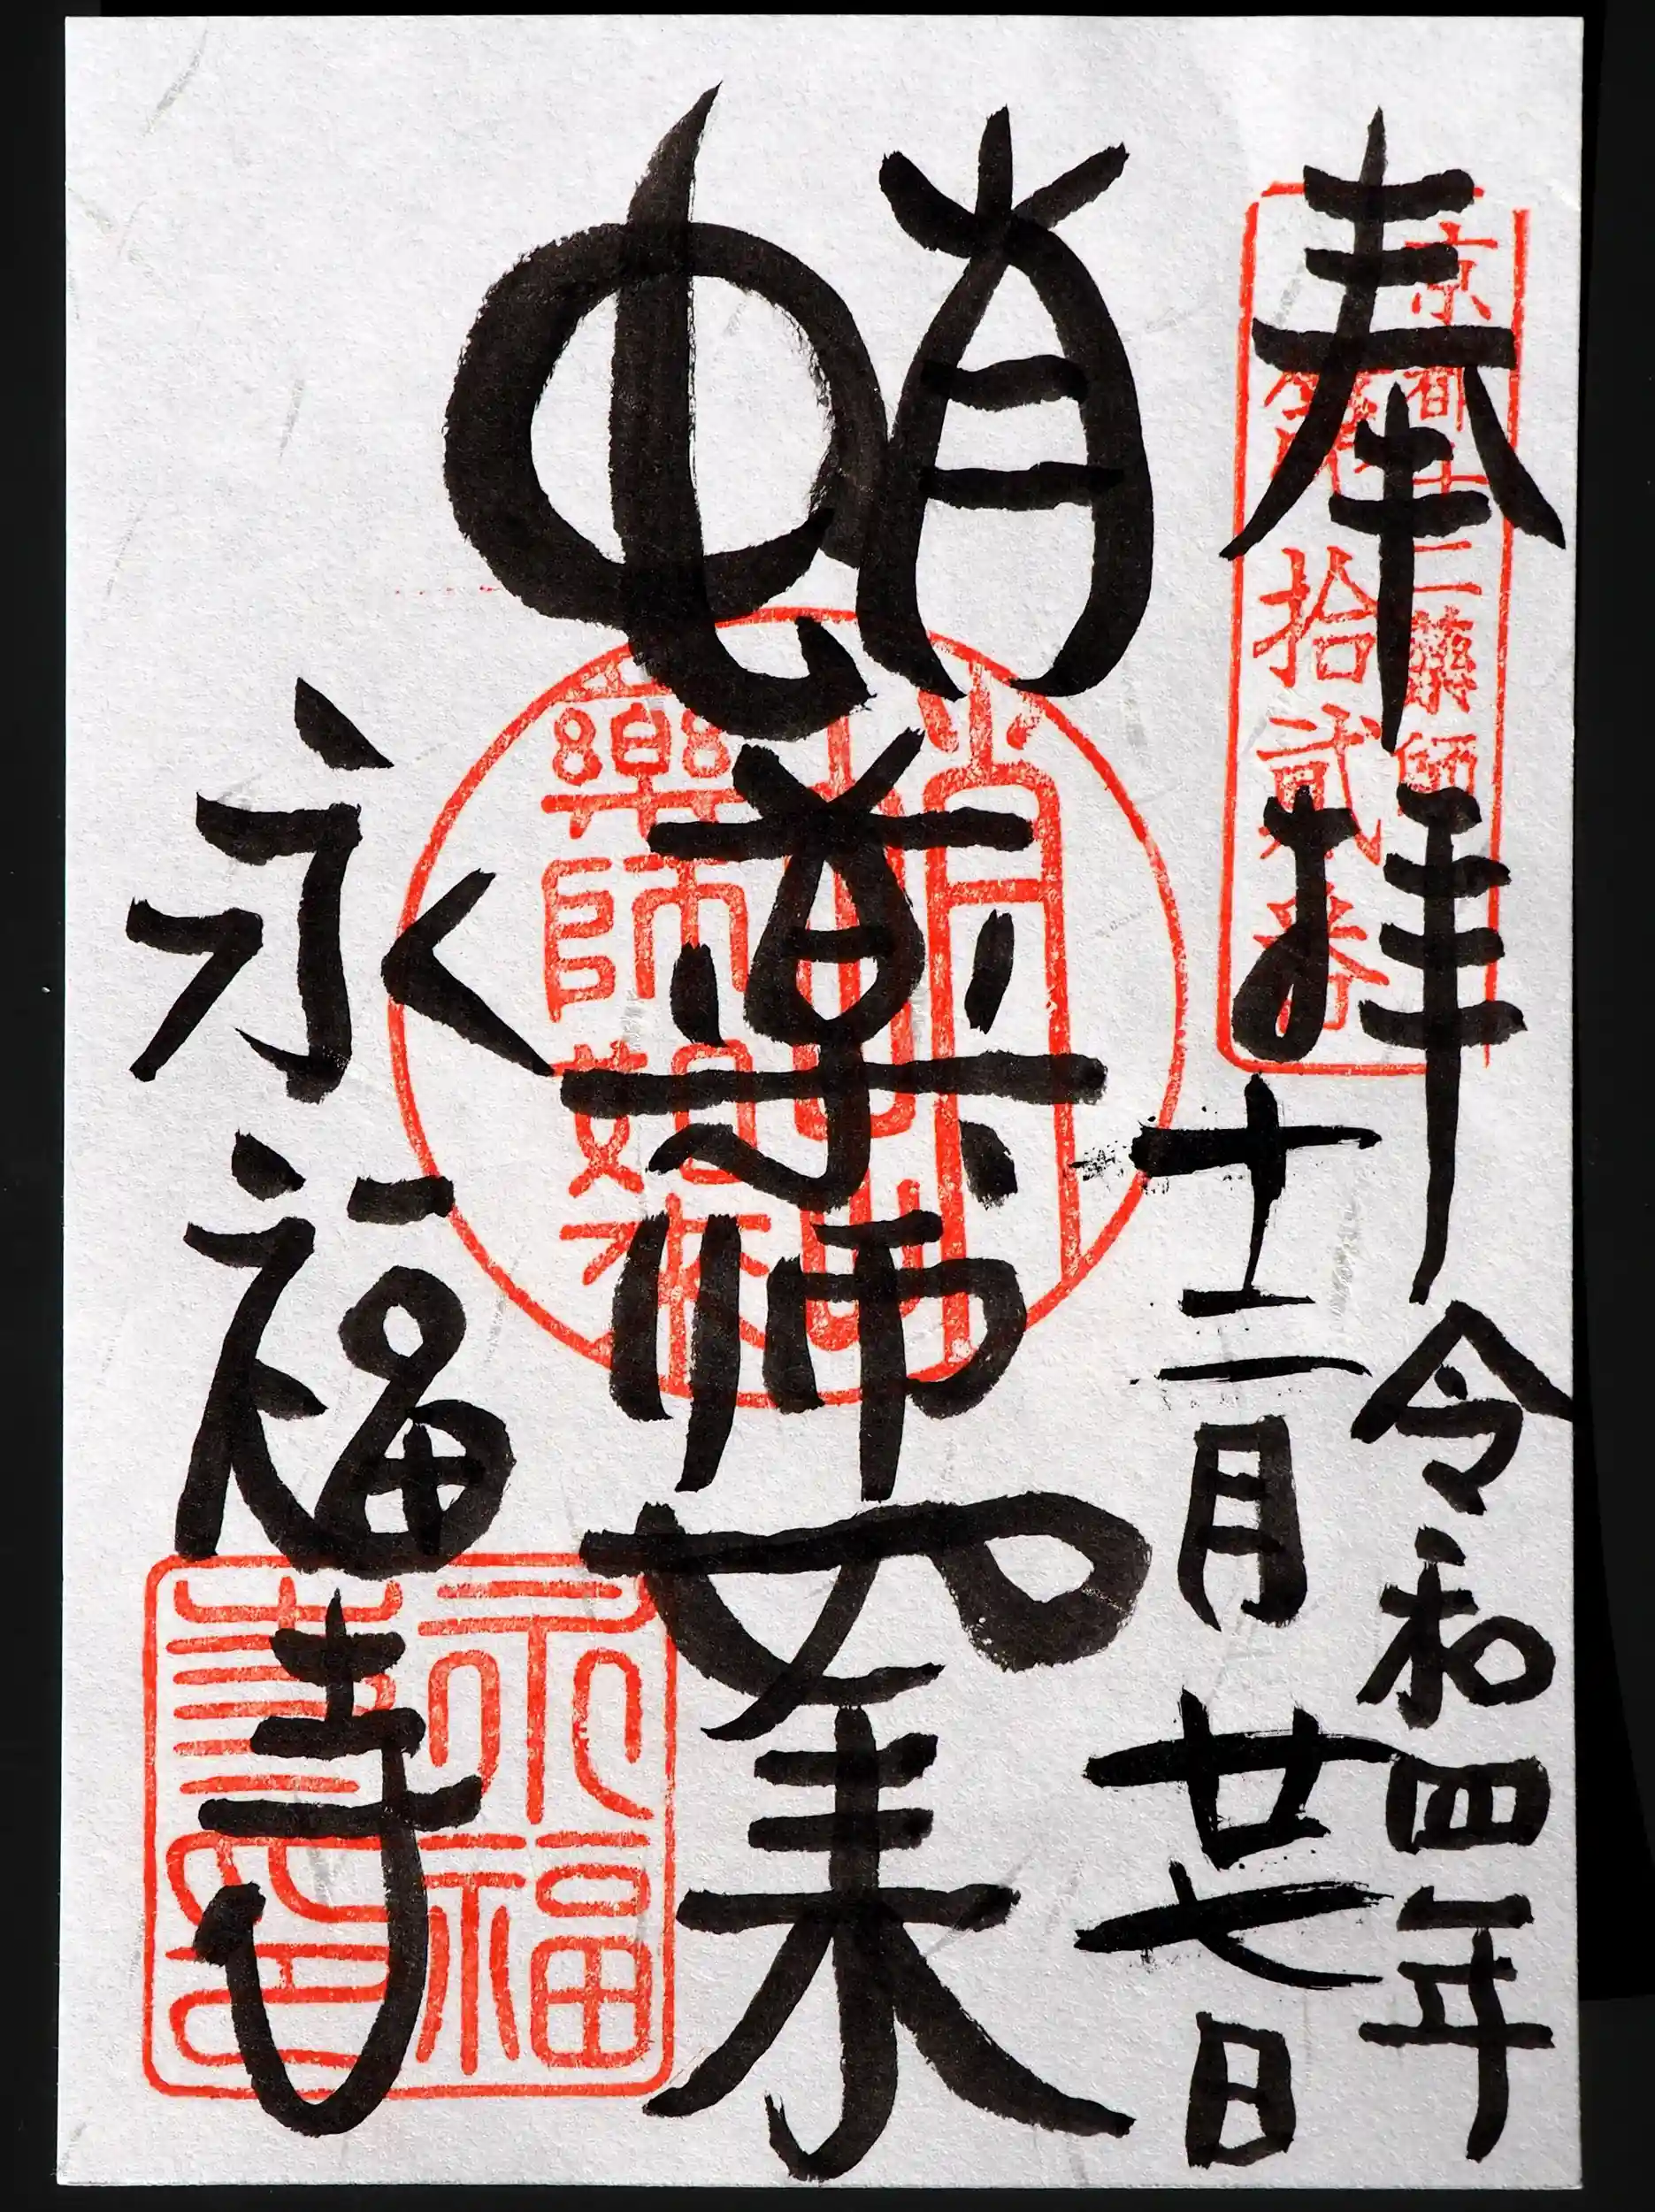 奉拝
令和四年
十二月廿七日
蛸薬師如来
永福寺
京都十二薬師
第拾貳番
蛸
薬師如来
永福
寺印